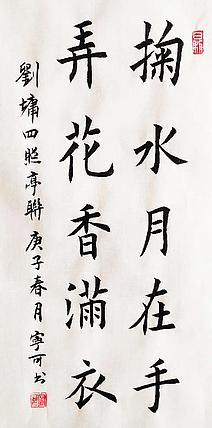 掬水月在手
弄花香滿衣
劉墉四照亭聯庚子春月寧可书